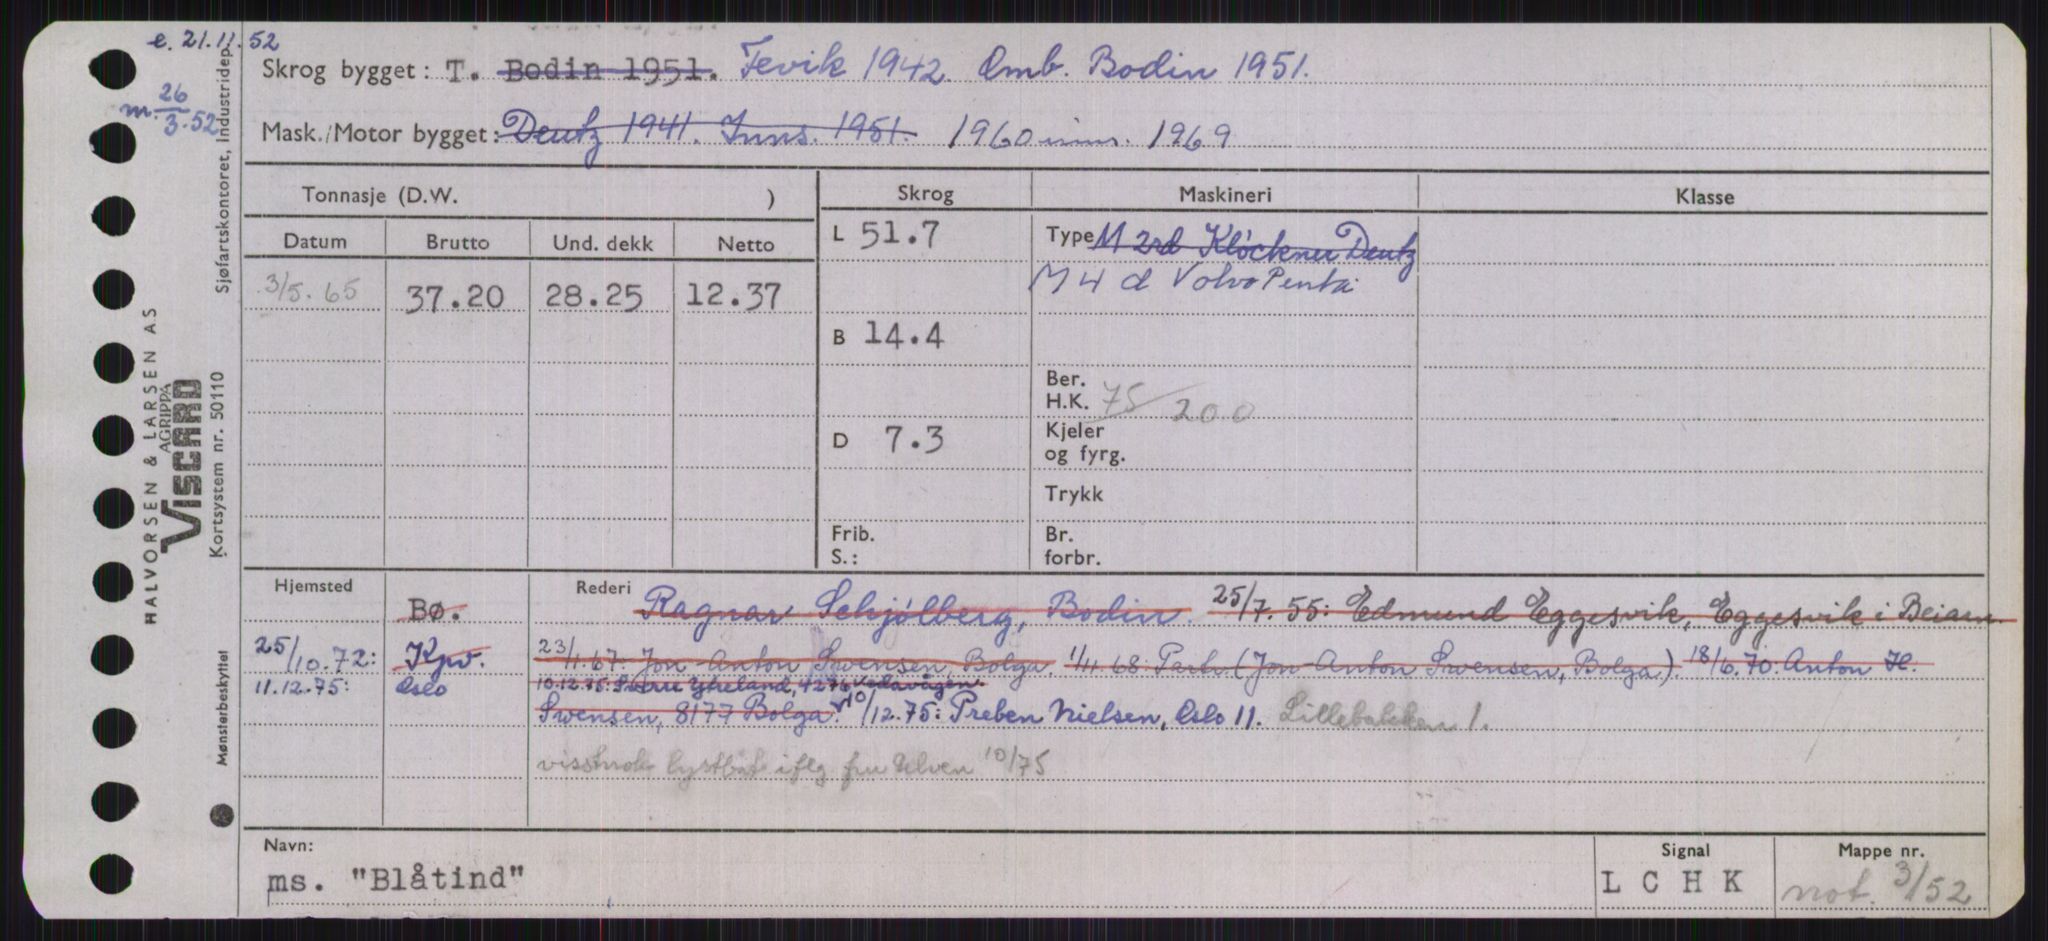 e. 21.11.52
m. 26/3.52
Skrog bygget: T. Bodin 1951. Fevik 1942. Omb. Bodin 1951.
Mask./Motor bygget: Deutz 1941. Inns. 1951. 1960 inns. 1969
Tonnasje (D.W. ) Skrog Maskineri Klasse
Datum Brutto Und. dekk Netto
L 51.7 Type M 2rd Klöckner Deutz
M 4 d Volvo Penta
3/5.65 37.20 28.25 12.37
B 14.4
Ber. H.K. 75 200
D 7.3 Kjeler og fyrg.
Trykk
Frib. S.: Br. forbr.
Hjemsted Rederi
Bø. Ragnar Schjølberg, Bodin. 25/7.55: Edmund Eggesvik, Eggesvik i Beiarn
25/10.72: Kpv. 23/1.67: Jon-Anton Swensen, Bolga. 1/11.68: Partr. (Jon-Anton Swensen, Bolga). 18/6.70. Anton H.
11.12.75: Oslo 10.12.75: Sverre Ytreland, 4276 Vedavågen
Swensen, 8177 Bolga. 10/12.75: Preben Nielsen, Oslo 11. Lillebakken 1.
visstnok lystbåt iflg. fru Ulven 10/75
Navn: Signal Mappe nr.
ms. "Blåtind" L C H K not. 3/52
Sjøfartskontoret, Industridep.
HALVORSEN & LARSEN AS
AGRIPPA
VISCARD
Kortsystem nr. 50110
Mønsterbeskyttet